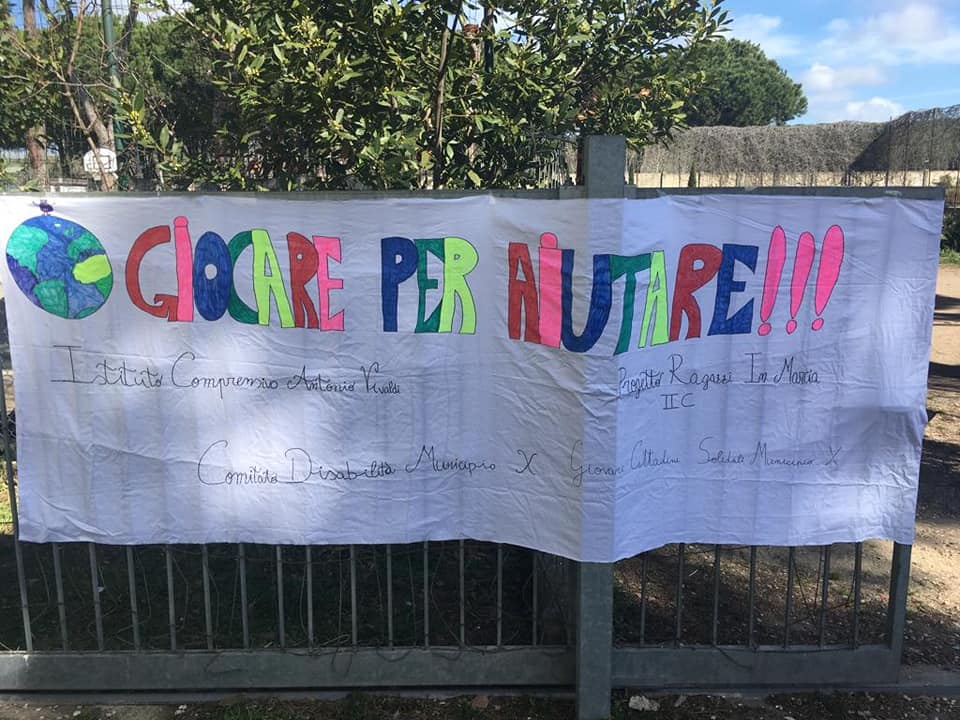 GIOCARE PER AIUTARE!!!
Istituto Comprensivo Antonio Vivaldi
Progetto Ragazzi In Marcia
II C
Comitato Disabilità Municipio X
Giovani Cittadini Solidali Municipio X